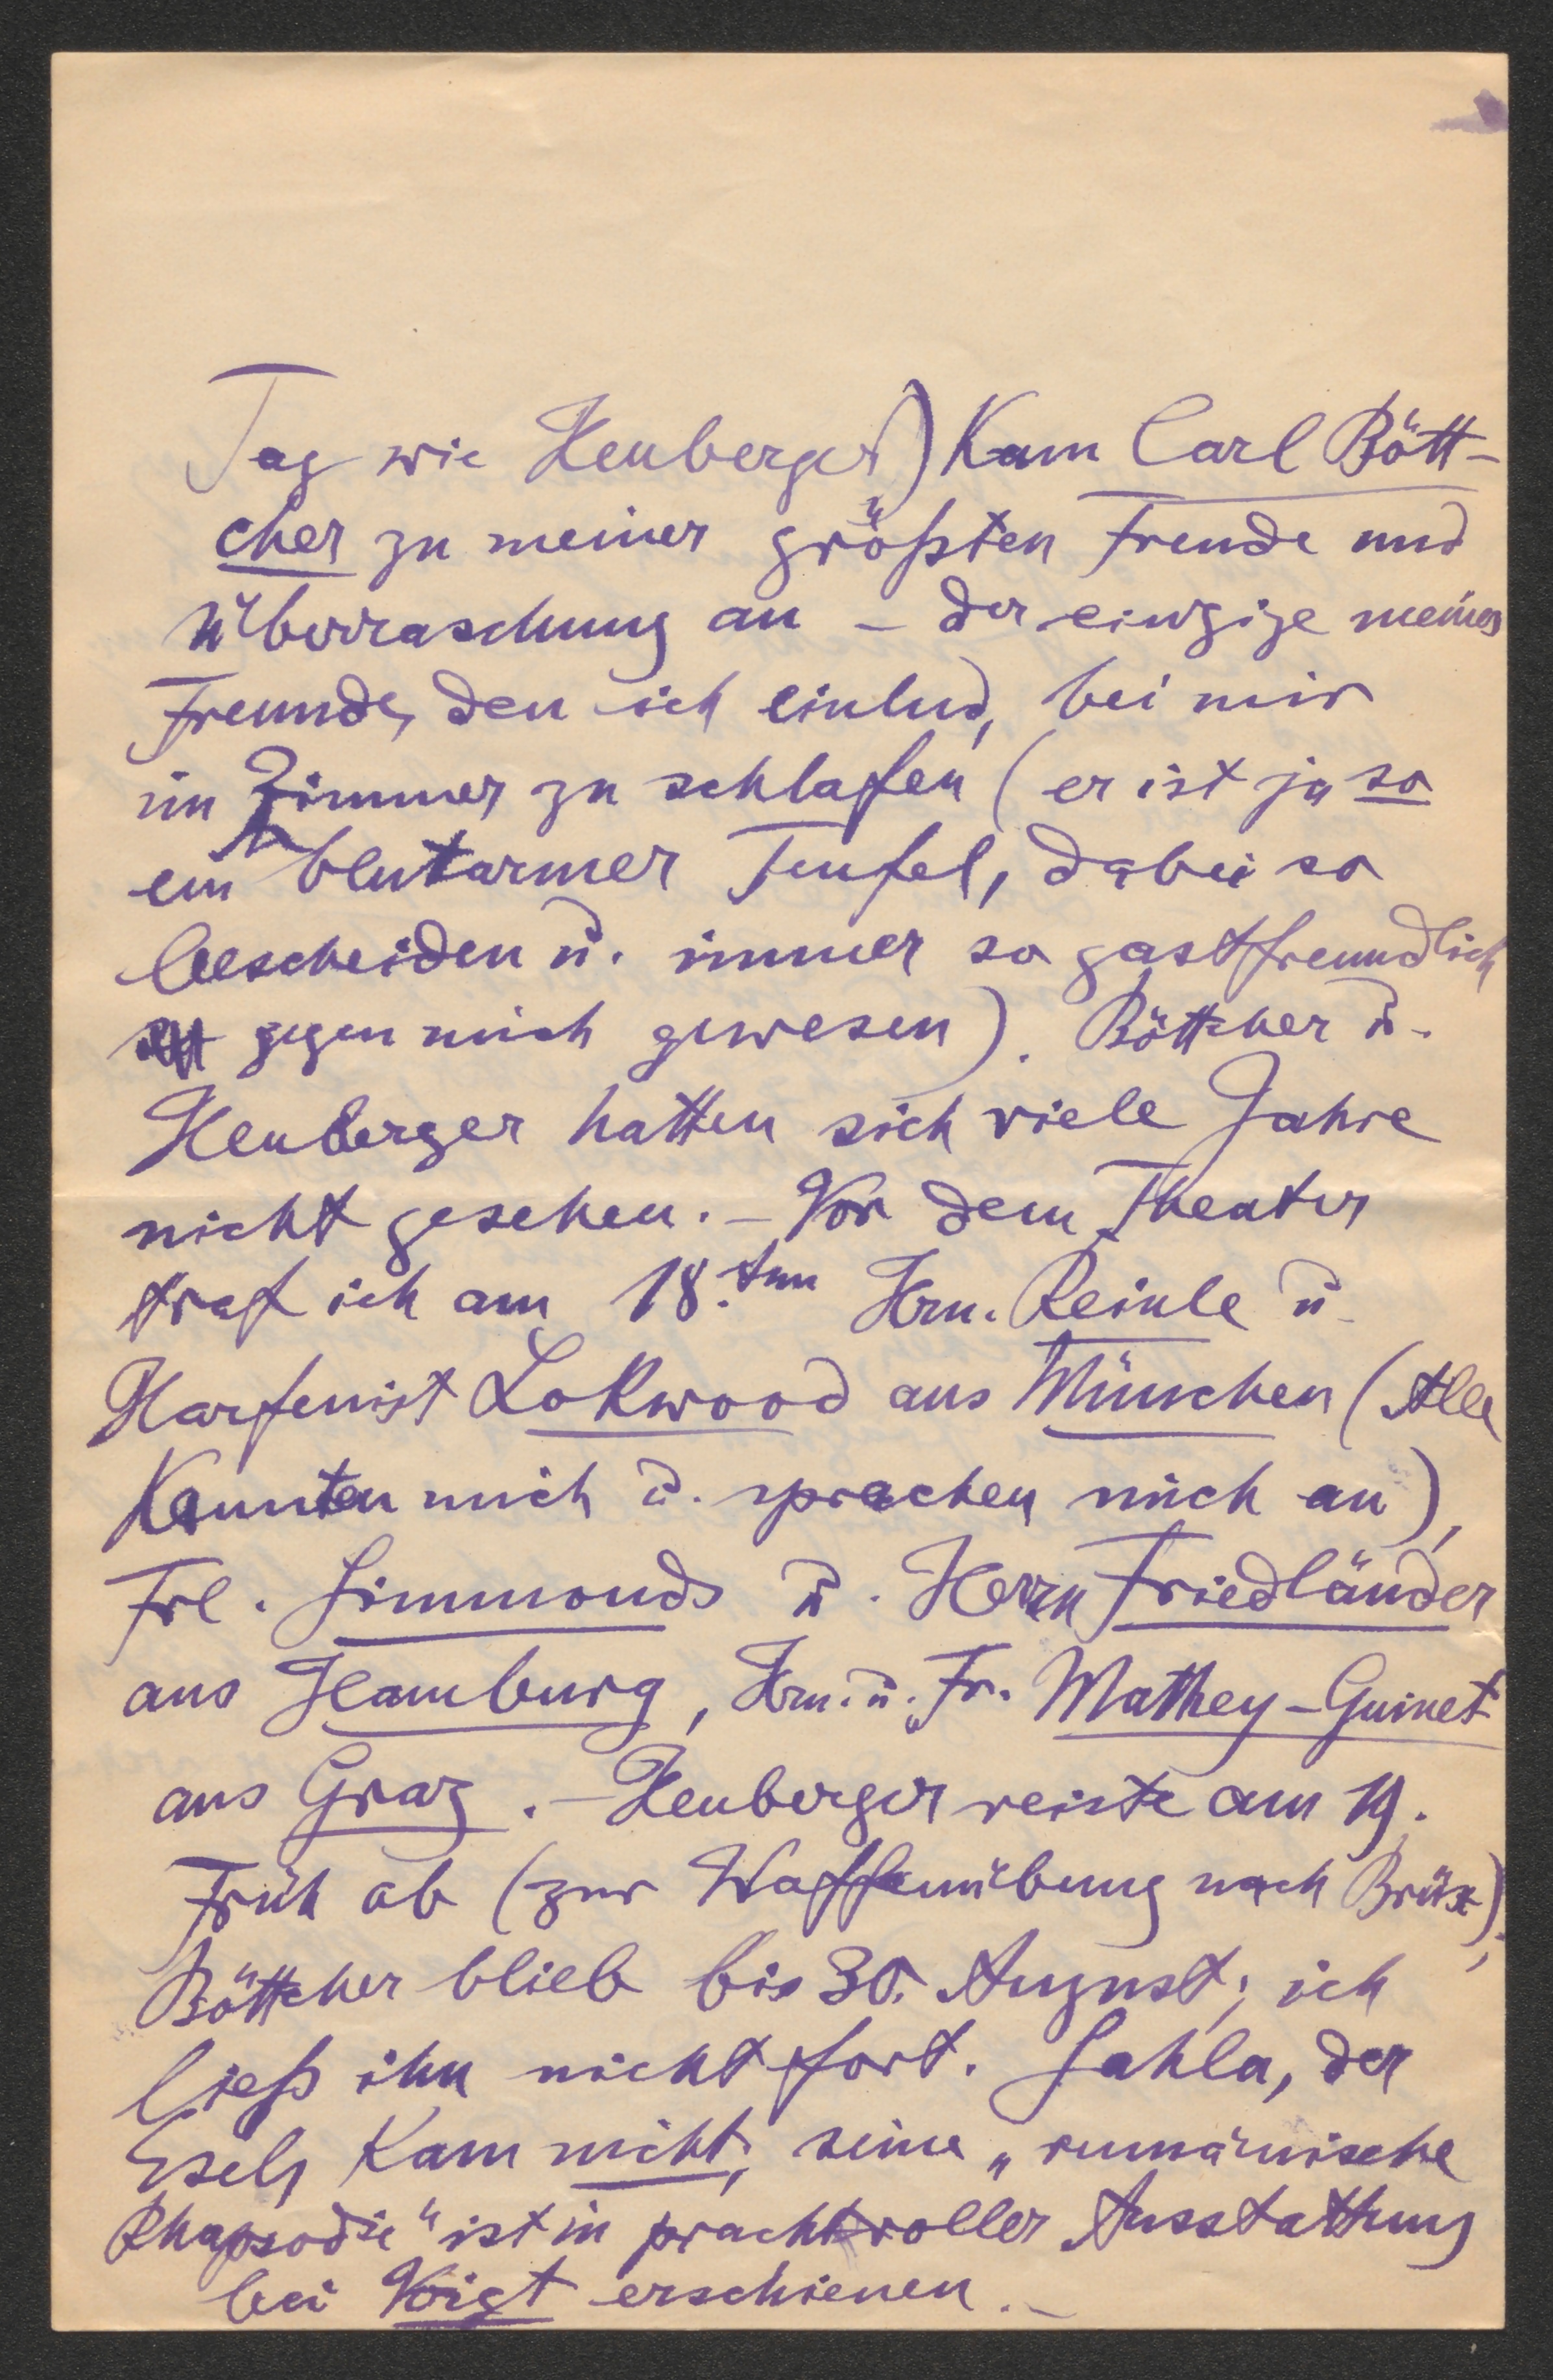 Tag wie Heuberger) kam Carl Bött-
cher zu meiner größten Freude und
Überraschung an – der einzige meiner
Freunde, den ich einlud, bei mir
im Zimmer zu schlafen (er ist ja so
ein blutarmer Teufel, dabei so
bescheiden u. immer so gastfreundlich
gegen mich gewesen). Böttcher u.
Heuberger hatten sich viele Jahre
nicht gesehen. – Vor dem Theater
traf ich am 18.ten Hrn. Reinle u.
Harfenist Lokwood aus München (Alle
kannten mich u. sprachen mich an),
Frl. Simmonds u. Herrn Friedländer
aus Hamburg, Hrn. u. Fr. Mathey-Guinet
aus Graz. – Heuberger reiste am 19.
Früh ab (zur Waffenübung nach Brüx);
Böttcher blieb bis 30. August; ich
ließ ihn nicht fort. Sahla, der
Esel, kam nicht; seine „rumänische
Rhapsodie“ ist in prachtvoller Ausstattung
bei Voigt erschienen. –